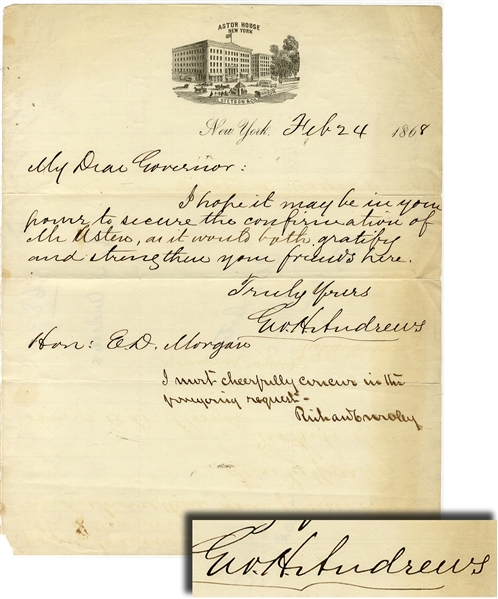 ASTOR HOUSE
NEW YORK
STETSON & CO.
New York. Feb 24 1868
My Dear Governor:
I hope it may be in your
power to secure the confirmation of
Mr Asten, as it would both gratify
and strengthen your friends here.
Truly Yours
Geo. H. Andrews
Hon: E. D. Morgan
I most cheerfully concur in the
foregoing request -
Richard Crowley
Geo. H. Andrews